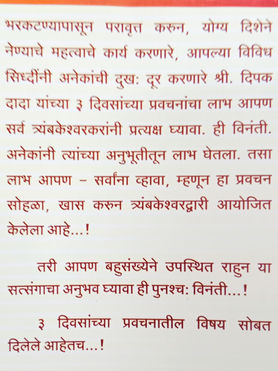 भरकटण्यापासून परावृत्त करुन, योग्य दिशेने
नेण्याचे महत्वाचे कार्य करणारे, आपल्या विविध
सिध्दींनी अनेकांची दुख: दूर करणारे श्री. दिपक
दादा यांच्या ३ दिवसांच्या प्रवचनांचा लाभ आपण
सर्व त्र्यंबकेश्वरकरांनी प्रत्यक्ष घ्यावा. ही विनंती.
अनेकांनी त्यांच्या अनुभूतीतून लाभ घेतला. तसा
लाभ आपण - सर्वांना व्हावा, म्हणून हा प्रवचन
सोहळा, खास करुन त्र्यंबकेश्वरद्वारी आयोजित
केलेला आहे...!
तरी आपण बहुसंख्येने उपस्थित राहुन या
सत्संगाचा अनुभव घ्यावा ही पुनश्च: विनंती...!
३ दिवसांच्या प्रवचनातील विषय सोबत
दिलेले आहेतच...!